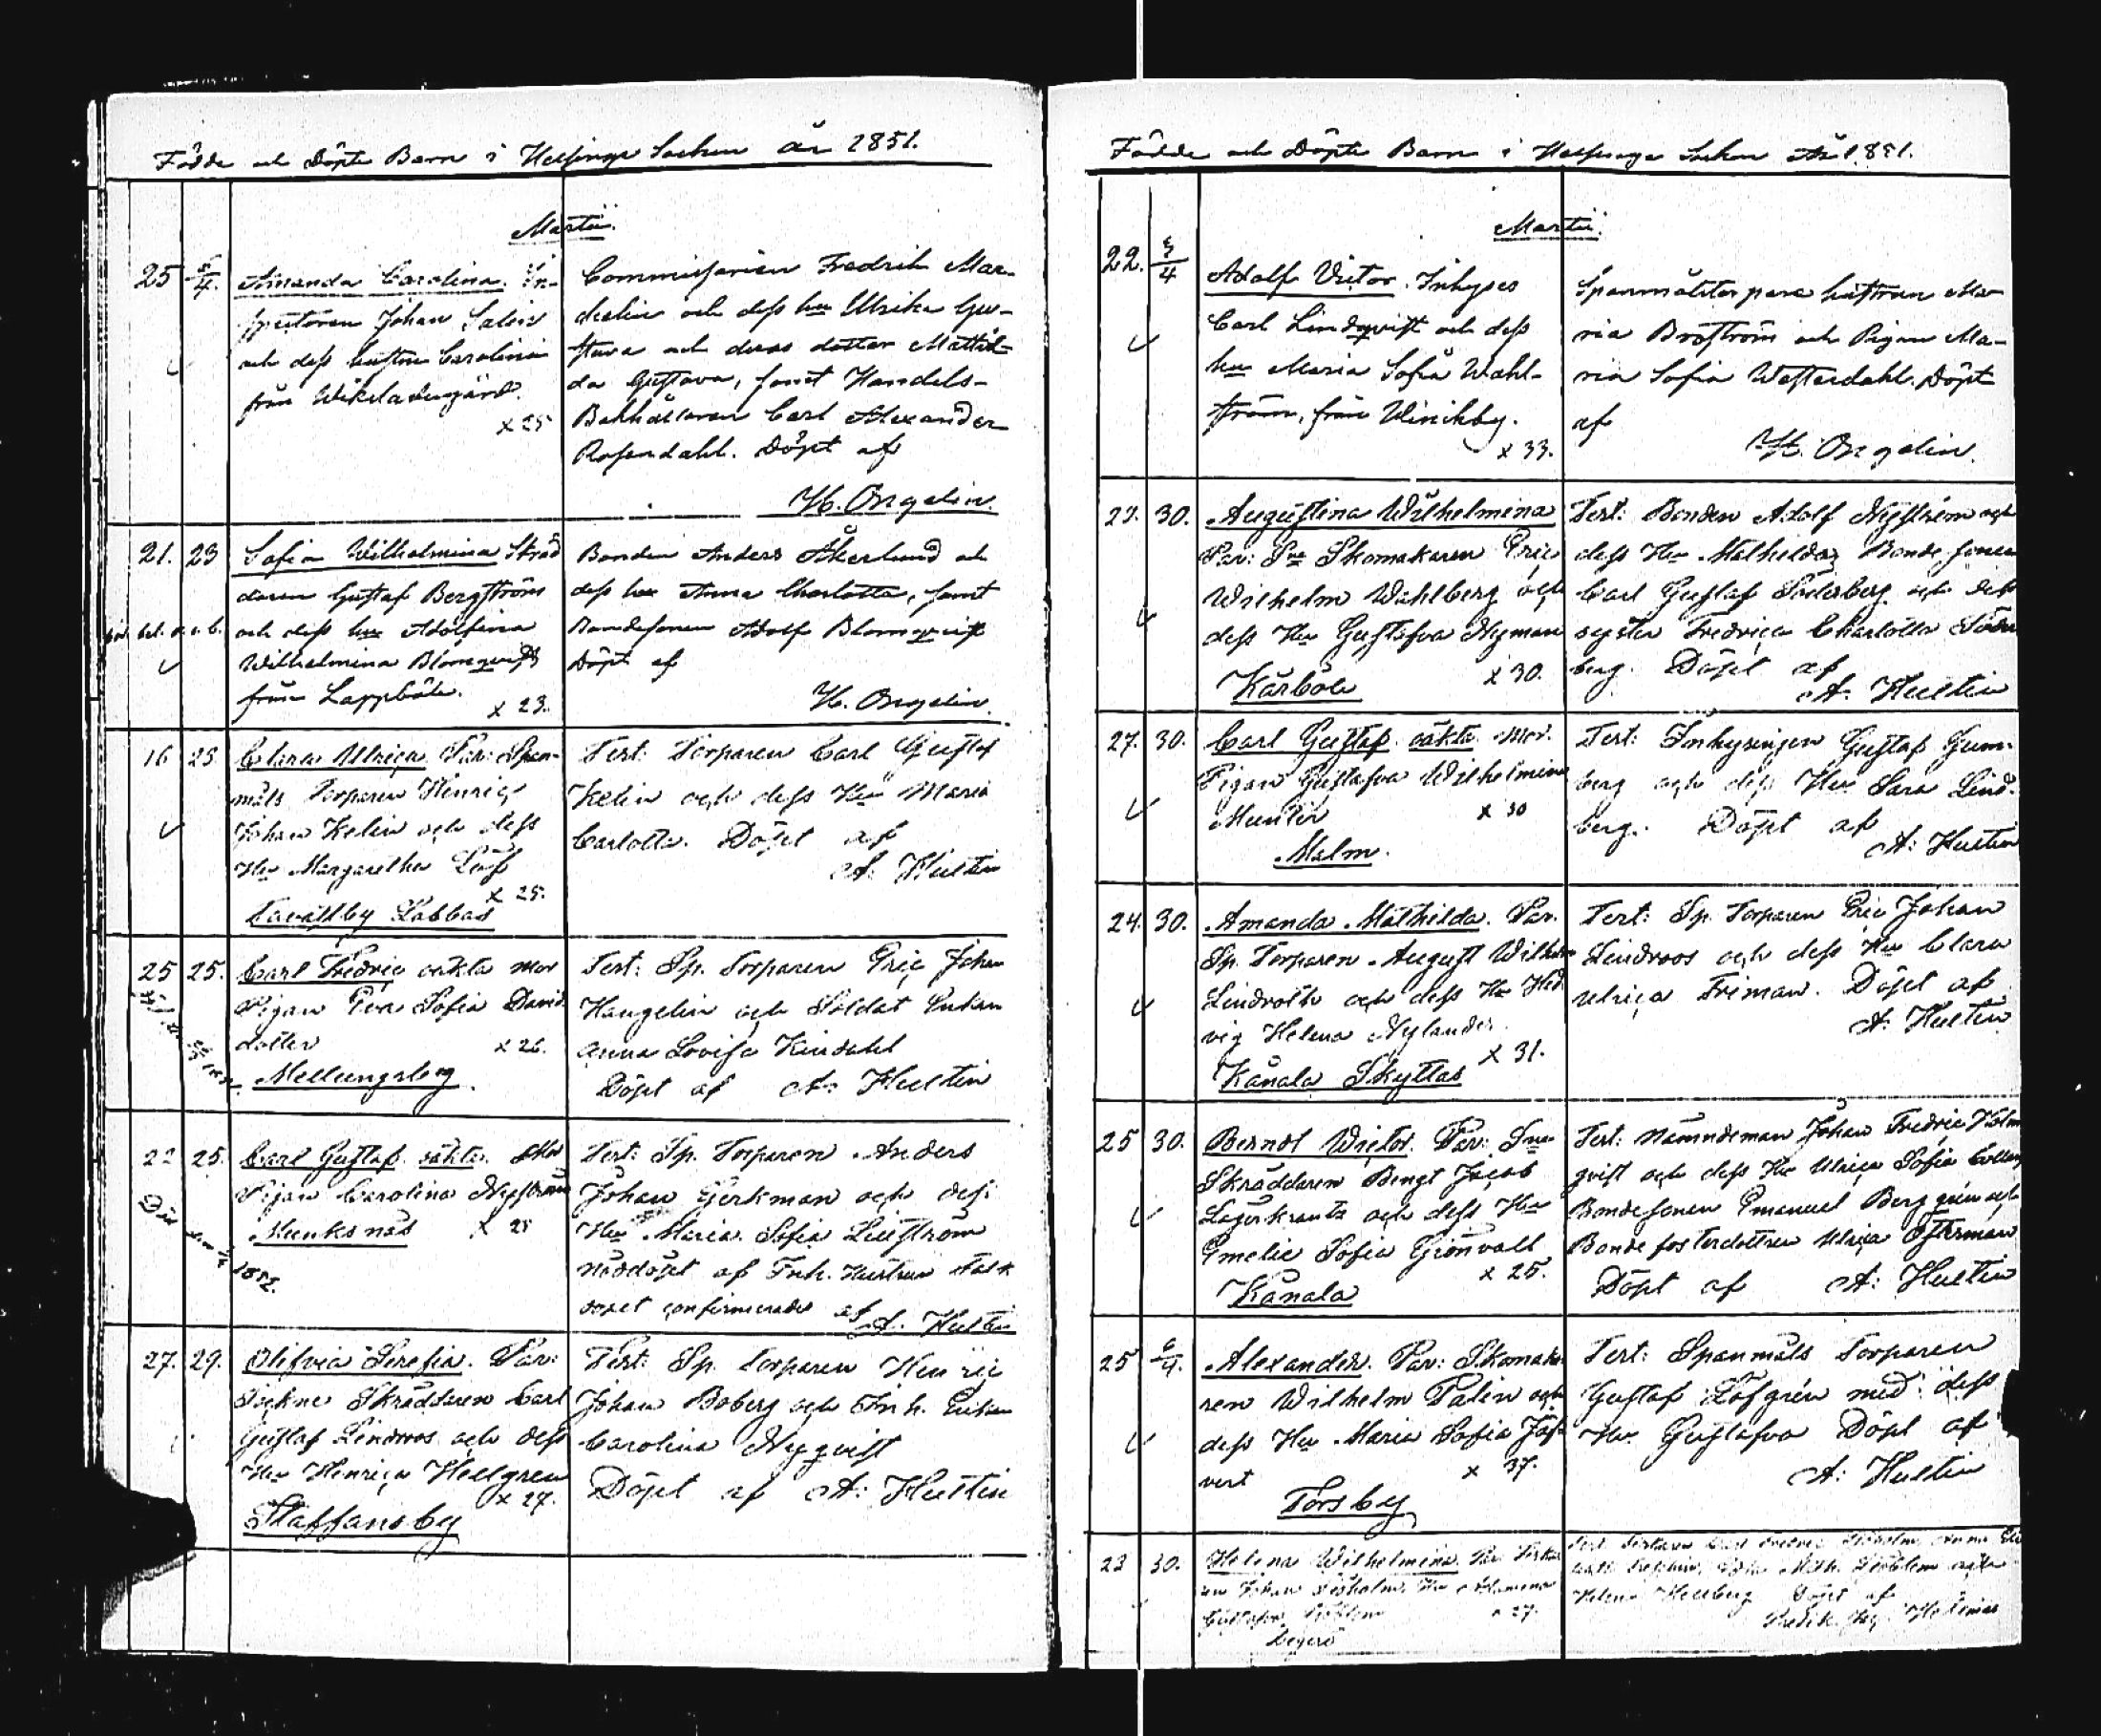 Födde och Döpte Barn i Helsinge Socken år 1851.
Martii.
25 5/4. Amanda Carolina. In-
spectoren Johan Salin
och dess hustru Carolina
från Wikeladugård.
x 25
Commissarien Fredrik Mar-
chelin och dess hu Ulrika Gu-
stava och deras dotter Mathil-
da Gustava, samt Handels-
Bokhållaren Carl Alexander
Rosendahl. Döpt af
H. Ongelin.
21. 23 Sofia Wilhelmina Skräd
daren Gustaf Bergström
och dess hu Adolfina
Wilhelmina Blomqvist
från Lappböle.
x 23.
Bonden Anders Åkerlund och
dess hu Anna Charlotta, samt
Bondesonen Adolf Blomqvist
Döpt af
H. Ongelin.
16 25 Clara Ulrica Par: Span-
måls Torparen Henric
Johan Kelin och dess
Hu Margaretha Löf
x 25.
Tavastby Labbas
Test: Torparen Carl Gustaf
Kelin och dess Hu Maria
Carlotta. Döpt af
A: Hultin
25 25. Carl Fredric oäkta Mor
Pigan Eva Sofia David
dotter x 26.
Mellungsby
Test: Sp. Torparen Eric Johan
Hangelin och Soldat Enkan
Anna Lovisa Kindahl
Döpt af A: Hultin
22 25. Carl Gustaf. oäkta. Mor
Pigan Carolina Nyström
Munksnäs x 25
Död den
1852.
Test: Sp. Torparen Anders
Johan Gerkman och dess
Hu Maria Sofia Liljström
nöddöpt af Inh. Hustrun Falk
dopet confirmerades af
A. Hultin
27. 29. Olifvia Serefia. Par:
Sockne Skräddaren Carl
Gustaf Lindroos och dess
Hu Henrica Hellgren
x 27.
Staffansby
Test: Sp. Torparen Henric
Johan Boberg och Inh. Enkan
Carolina Nyqvist
Döpt af A: Hultin
Födde och Döpte Barn i Helsinge Socken År 1851.
Martii.
22. 3/4 Adolf Victor. Inhyses
Carl Lindqvist och dess
hu Maria Sofia Wahl-
ström, från Winikby.
x 33.
Spanmålstorpare hustrun Ma-
ria Broström och Pigan Ma-
ria Sofia Westerdahl. Döpt
af
H. Ongelin.
27. 30. Augustina Wilhelmina
Par: Sne Skomakaren Eric
Wilhelm Wahlberg och
dess Hu Gustafva Nyman
x 30.
Kårböle
Test: Bonden Adolf Nyström och
dess Hu Mathilda, Bonde sonen
Carl Gustaf Söderberg och dess
syster Fredrica Charlotta Söder
berg. Döpt af
A: Hultin
27. 30. Carl Gustaf. oäkta. Mor.
Pigan Gustafva Wilhelmina
Munter x 30
Malm.
Test: Inhysingen Gustaf Gum-
berg och dess Hu Sara Lind-
berg. Döpt af
A: Hultin
24. 30. Amanda Mathilda. Par.
Sp. Torparen August Wilhelm
Lindroth och dess Hu Hed
vig Helena Nylander.
x 31.
Kånala Skyttas
Test: Sp. Torparen Eric Johan
Lindroos och dess Hu Clara
Ulrica Friman. Döpt af
A: Hultin
25 30. Berndt Wictor. Par: Sne
Skräddaren Bengt Jacob
Lagerkrantz och dess Hu
Emelie Sofia Grönvall
x 25.
Kånala
Test: Nämndeman Johan Fredric Holm
qvist och dess Hu Ulrica Sofia
Bondesonen Emanuel Berggrén och
Bonde fosterdottren Ulrica Österman
Döpt af A: Hultin
25 6/4. Alexander. Par: Skomaka
ren Wilhelm Palin och
dess Hu Maria Sofia Jäf
vert x 37.
Torsby
Test: Spanmåls Torparen
Gustaf Löfgrén med dess
Hu Gustafva Döpt af
A: Hultin
23 30. Helena Wilhelmina. Par.
x 27.
Degerö
Helena Hellberg Döpt af